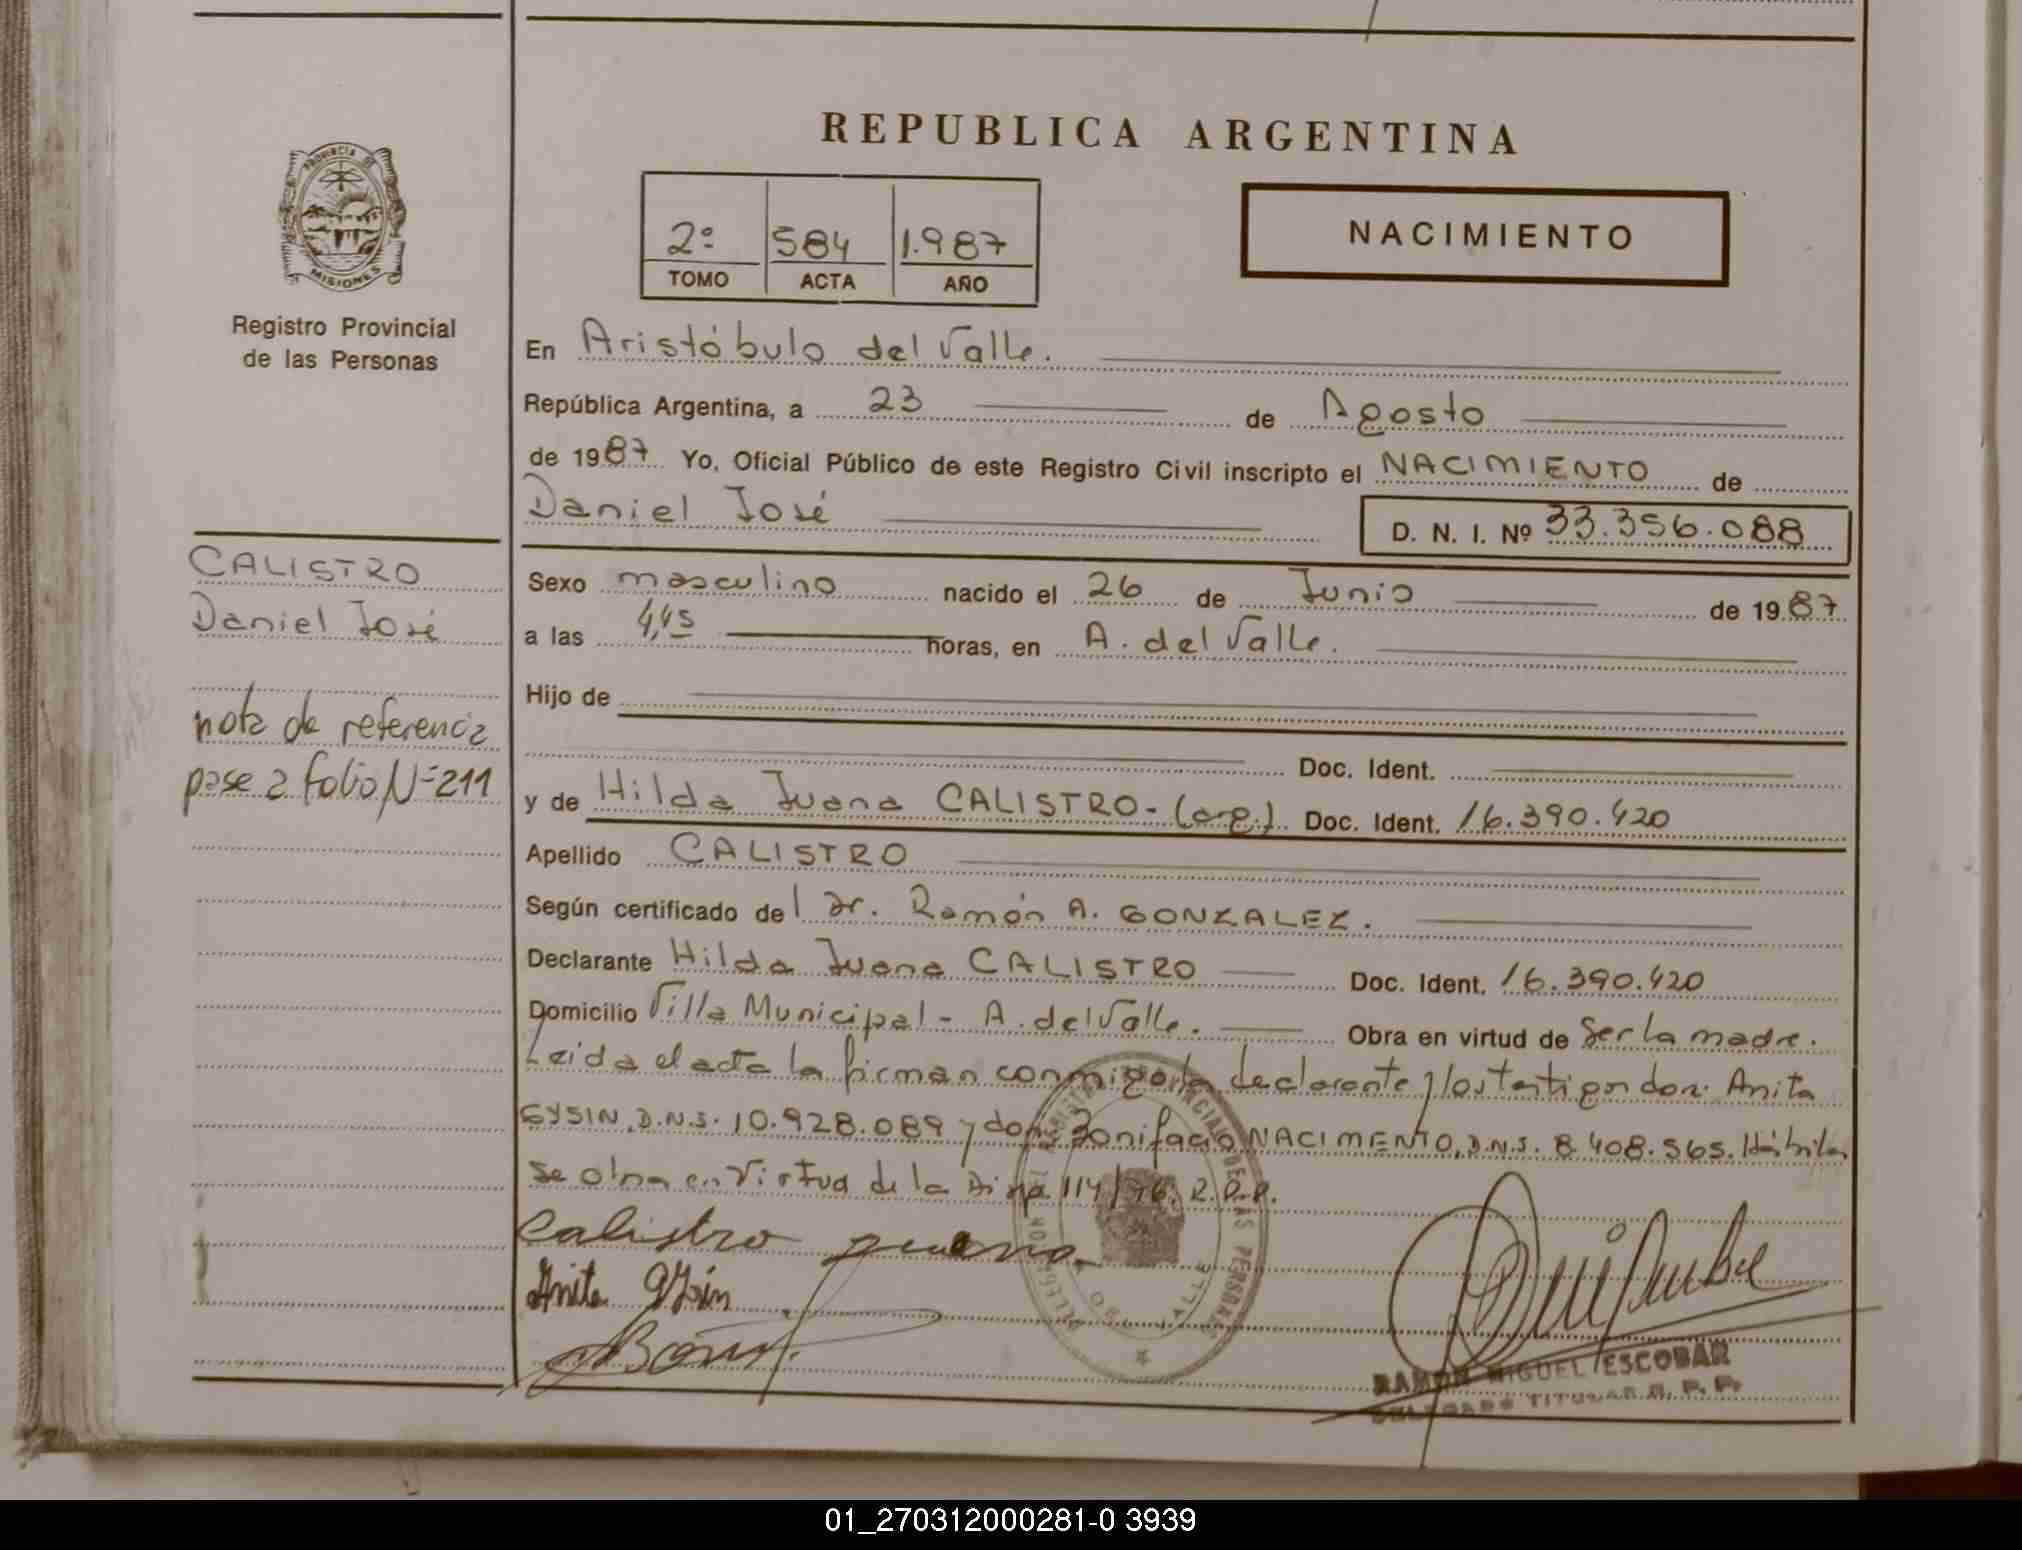 REPUBLICA ARGENTINA
PROVINCIA DE
MISIONES
Registro Provincial
de las Personas
2º 584 1.987
TOMO ACTA AÑO
NACIMIENTO
En Aristóbulo del Valle.
República Argentina, a 23 de Agosto
de 1987 Yo, Oficial Público de este Registro Civil inscripto el NACIMIENTO de
Daniel José D. N. I. Nº 33.356.088
CALISTRO
Daniel José
nota de referencia
pase a folio Nº 211
Sexo masculino nacido el 26 de Junio de 1987
a las 4,45 horas, en A. del Valle.
Hijo de
Doc. Ident.
y de Hilda Juana CALISTRO - (arg.) Doc. Ident. 16.390.420
Apellido CALISTRO
Según certificado del Dr. Ramón A. GONZALEZ.
Declarante Hilda Juana CALISTRO Doc. Ident. 16.390.420
Domicilio Villa Municipal - A. del Valle. Obra en virtud de Ser la madre.
Leida el acta la firman conmigo la declarante y los testigos don: Anita
GYSIN, D.N.I. 10.928.089 y don Bonifacio NACIMENTO, D.N.I. 8.408.565. Hábiles
se obra en Virtud de la Disp. 114/76. R.P.P.
Calistro Juana
Anita Gysin
RAMON MIGUEL ESCOBAR
DELEGADO TITULAR R. P. P.
01_270312000281-0 3939